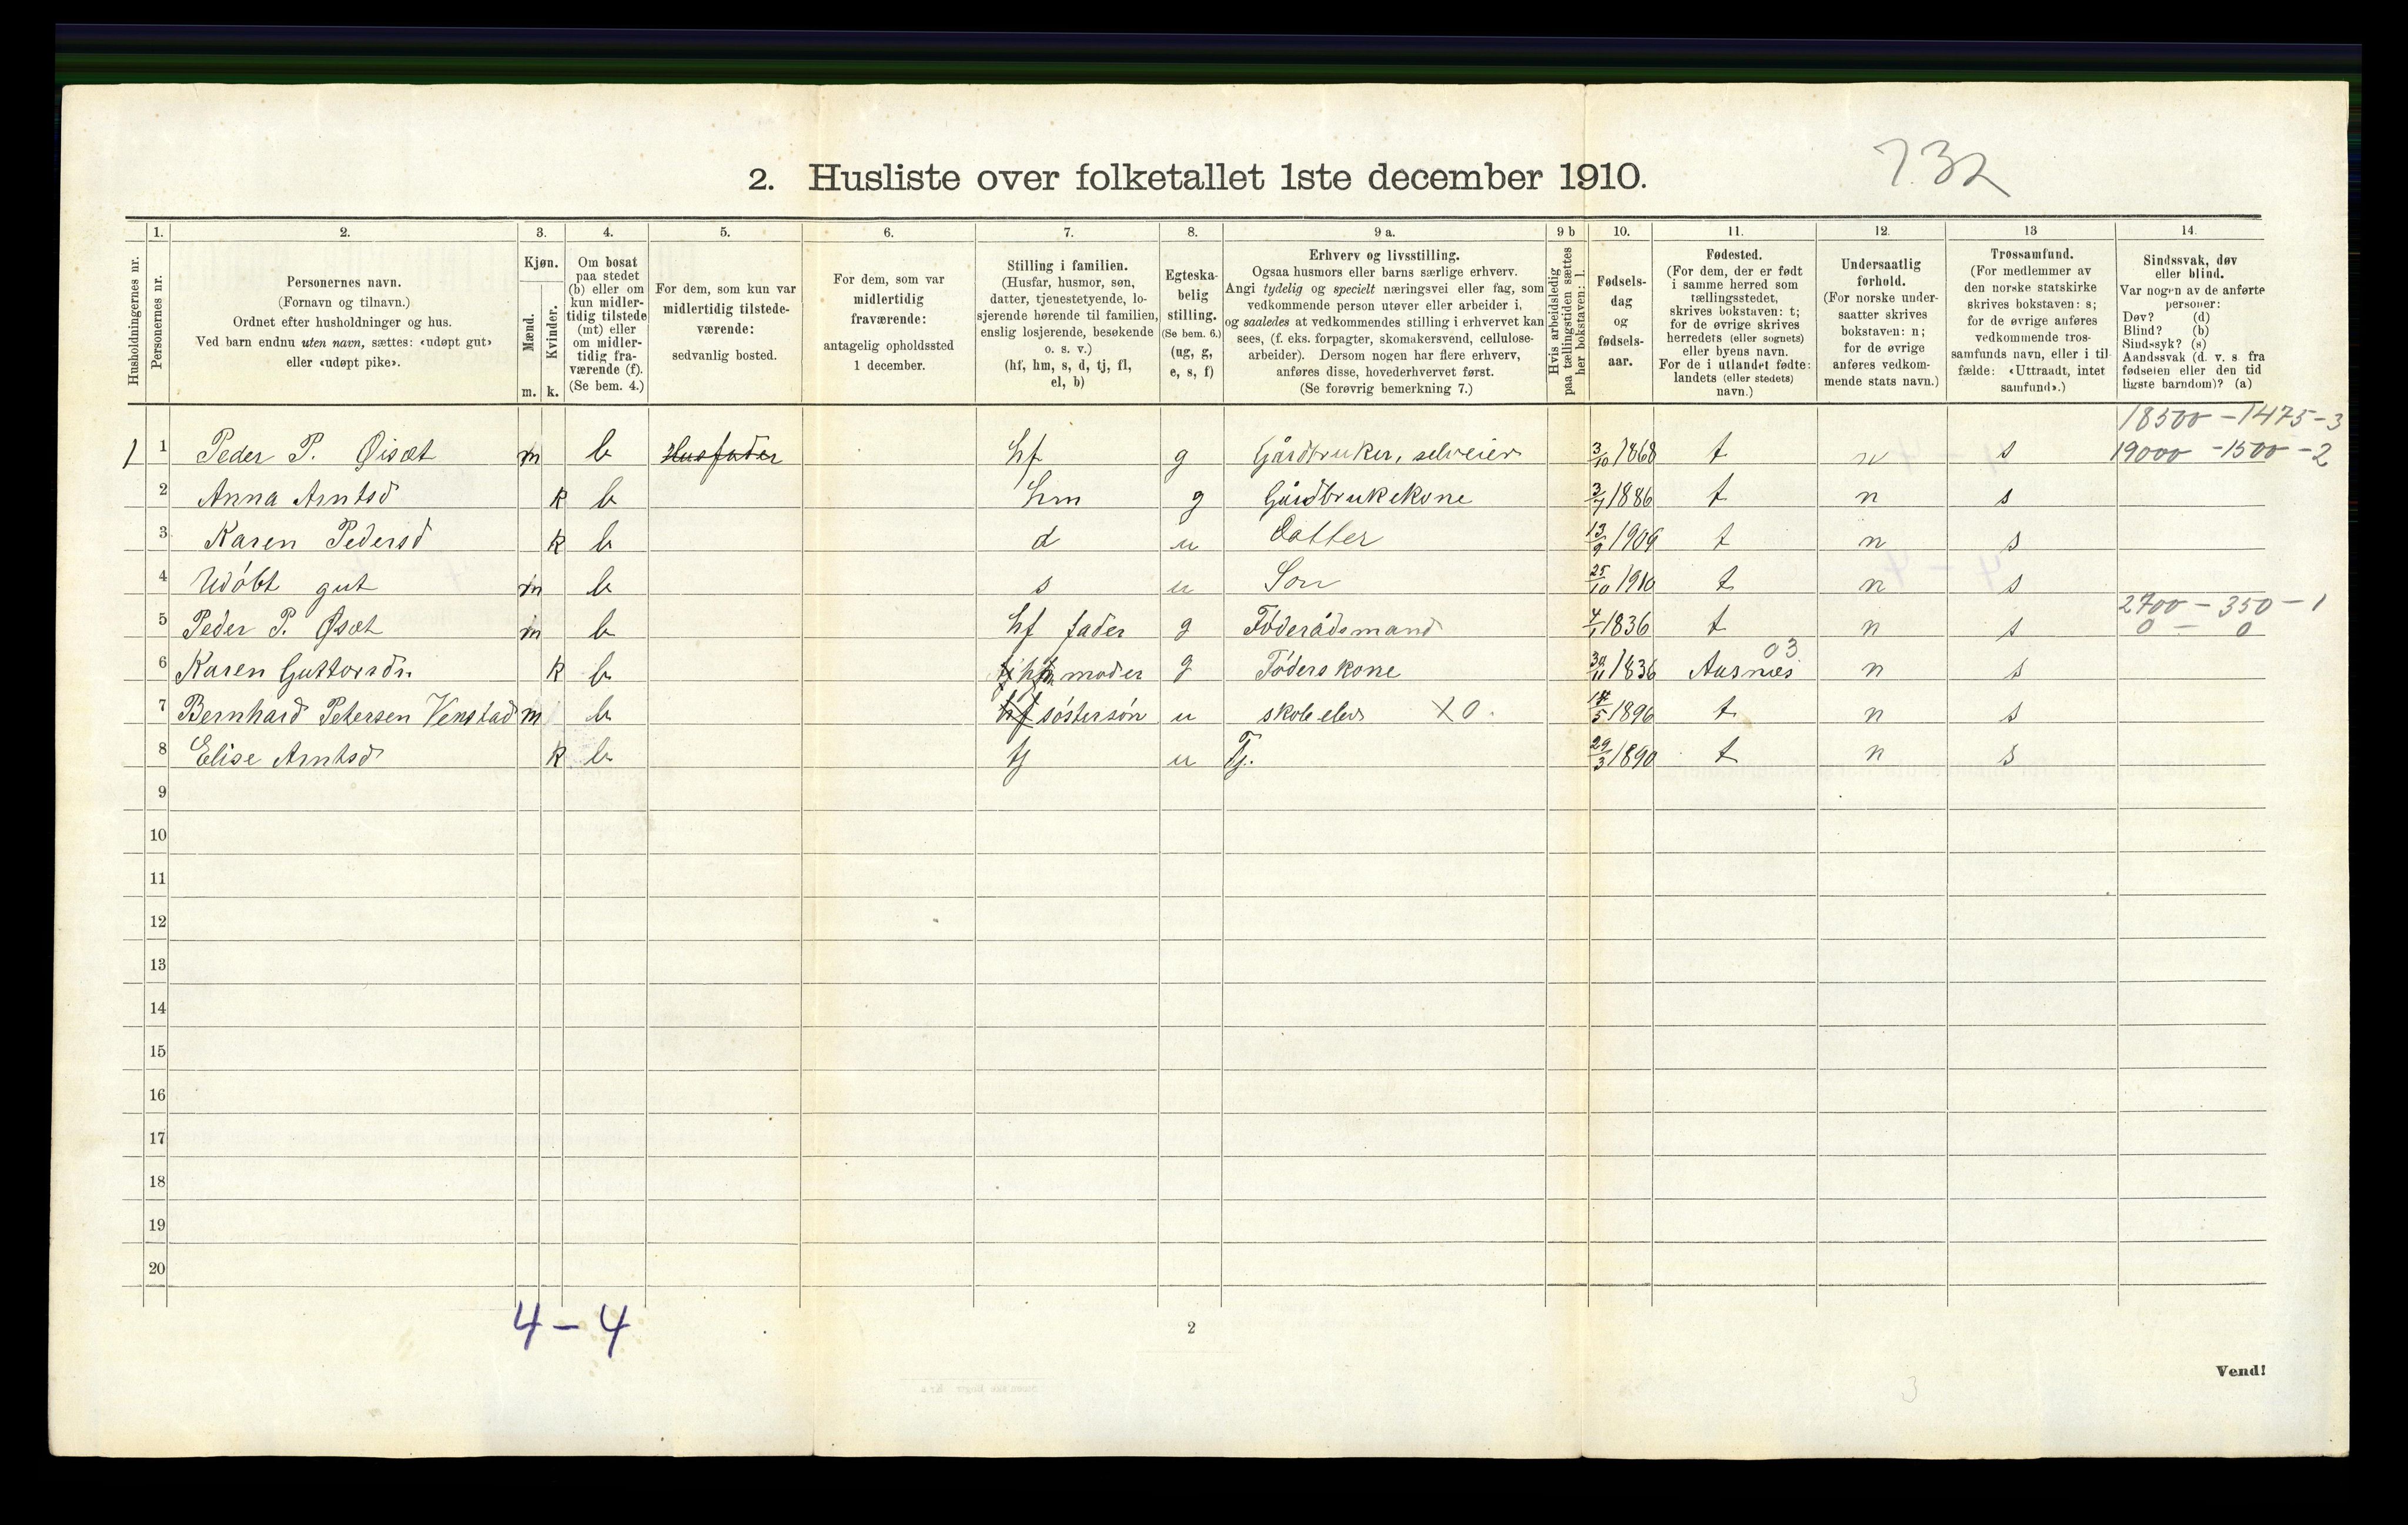 732
2. Husliste over folketallet 1ste december 1910.
Husholdningernes nr.
1.
Personernes nr.
2.
Personernes navn.
(Fornavn og tilnavn.)
Ordnet efter husholdninger og hus.
Ved barn endnu uten navn, sættes: «udøpt gut»
eller «udøpt pike».
3.
Kjøn.
Mænd.
Kvinder.
m. k.
4.
Om bosat
paa stedet
(b) eller om
kun midler-
tidig tilstede
(mt) eller
om midler-
tidig fra-
værende (f).
(Se bem. 4.)
5.
For dem, som kun var
midlertidig tilstede-
værende:
sedvanlig bosted.
6.
For dem, som var
midlertidig
fraværende:
antagelig opholdssted
1 december.
7.
Stilling i familien.
(Husfar, husmor, søn,
datter, tjenestetyende, lo-
sjerende hørende til familien,
enslig losjerende, besøkende
o. s. v.)
(hf, hm, s, d, tj, fl,
el, b)
8.
Egteska-
belig
stilling.
(Se bem. 6.)
(ug, g,
e, s, f)
9 a.
Erhverv og livsstilling.
Ogsaa husmors eller barns særlige erhverv.
Angi tydelig og specielt næringsvei eller fag, som
vedkommende person utøver eller arbeider i,
og saaledes at vedkommendes stilling i erhvervet kan
sees, (f. eks. forpagter, skomakersvend, cellulose-
arbeider). Dersom nogen har flere erhverv,
anføres disse, hovederhvervet først.
(Se forøvrig bemerkning 7.)
9 b
Hvis arbeidsledig
paa tællingstiden sættes
her bokstaven: l.
10.
Fødsels-
dag
og
fødsels-
aar.
11.
Fødested.
(For dem, der er født
i samme herred som
tællingsstedet,
skrives bokstaven: t;
for de øvrige skrives
herredets (eller sognets)
eller byens navn.
For de i utlandet fødte:
landets (eller stedets)
navn.)
12.
Undersaatlig
forhold.
(For norske under-
saatter skrives
bokstaven: n;
for de øvrige
anføres vedkom-
mende stats navn.)
13
Trossamfund.
(For medlemmer av
den norske statskirke
skrives bokstaven: s;
for de øvrige anføres
vedkommende tros-
samfunds navn, eller i til-
fælde: «Uttraadt, intet
samfund».)
14.
Sindssvak, døv
eller blind.
Var nogen av de anførte
personer:
Døv? (d)
Blind? (b)
Sindssyk? (s)
Aandssvak (d. v. s fra
fødselen eller den tid
ligste barndom)? (a)
18500 - 1475 - 3
1 1 Peder P. Øisæt m b Husfader hf g Gårdbruker, selveier 3/10 1868 t n s 19000 - 1500 - 2
2 Anna Arntsd k b hm g Gårdbrukekone 3/7 1886 t n s
3 Karen Pedersd k b d u Datter 13/9 1909 t n s
4 Udöbt gut m b s u Son 25/10 1910 t n s
2700 - 350 - 1
5 Peder P. Øsæt m b hf fader g Föderådsmand 4/1 1836 t n s 0 - 0
03
6 Karen Guttorsdn k b hf moder g Föderskone 30/11 1836 Aasnæs n s
7 Bernhard Petersen Venstad m b hf söstersön u skoleelev X0. 14/5 1896 t n s
8 Elise Arntsd k b tj u Tj. 29/3 1890 t n s
9
10
11
12
13
14
15
16
17
18
19
20
4 - 4
2
Vend!
3